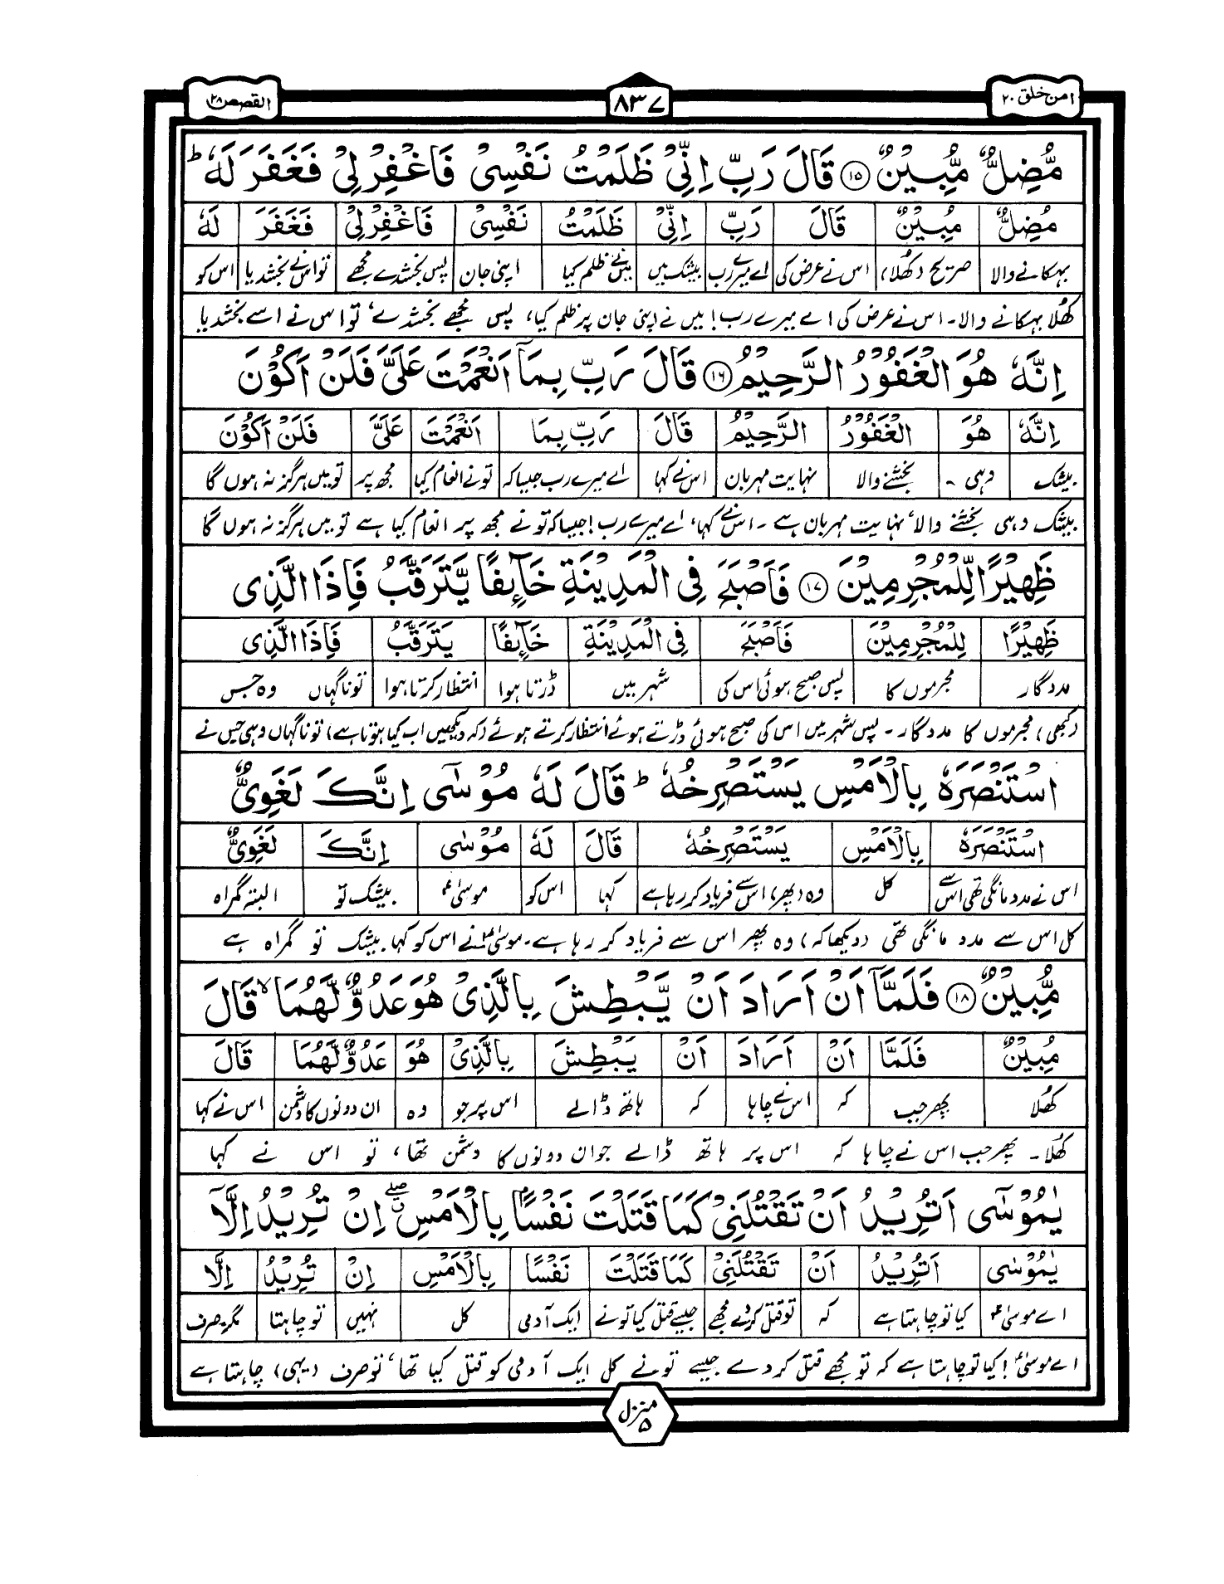 امن خلق ۲۰
۸۳۷
القصص ۲۸
مُّضِلٌّ مُّبِیْنٌ ۝۱۵ قَالَ رَبِّ اِنِّیْ ظَلَمْتُ نَفْسِیْ فَاغْفِرْلِیْ فَغَفَرَ لَهٗ ؕ
مُضِلٌّ مُبِیْنٌ قَالَ رَبِّ اِنِّیْ ظَلَمْتُ نَفْسِیْ فَاغْفِرْلِیْ فَغَفَرَ لَهٗ
بہکانے والا صریح (کھلا) اس نے عرض کی اے میرے رب بیشک میں میں نے ظلم کیا اپنی جان پس بخشدے مجھے تو اس نے بخشدیا اس کو
کھلا بہکانے والا۔ اس نے عرض کی اے میرے رب! میں نے اپنی جان پر ظلم کیا، پس مجھے بخشدے، تو اس نے اسے بخشدیا
اِنَّهٗ هُوَ الْغَفُوْرُ الرَّحِیْمُ ۝۱۶ قَالَ رَبِّ بِمَاۤ اَنْعَمْتَ عَلَیَّ فَلَنْ اَکُوْنَ
اِنَّهٗ هُوَ الْغَفُوْرُ الرَّحِیْمُ قَالَ رَبِّ بِمَا اَنْعَمْتَ عَلَیَّ فَلَنْ اَکُوْنَ
بیشک وہی ۔ بخشنے والا نہایت مہربان اس نے کہا اے میرے رب جیسا کہ تو نے انعام کیا مجھ پر تو میں ہرگز نہ ہوں گا
بیشک وہی بخشنے والا، نہایت مہربان ہے ۔ اس نے کہا، اے میرے رب! جیسا کہ تو نے مجھ پر انعام کیا ہے تو میں ہرگز نہ ہوں گا
ظَهِیْرًا لِّلْمُجْرِمِیْنَ ۝۱۷ فَاَصْبَحَ فِی الْمَدِیْنَةِ خَآئِفًا یَّتَرَقَّبُ فَاِذَا الَّذِی
ظَهِیْرًا لِلْمُجْرِمِیْنَ فَاَصْبَحَ فِی الْمَدِیْنَةِ خَآئِفًا یَتَرَقَّبُ فَاِذَا الَّذِی
مددگار مجرموں کا پس صبح ہوئی اس کی شہر میں ڈرتا ہوا انتظار کرتا ہوا تو ناگہاں وہ جس
(کبھی) مجرموں کا مددگار۔ پس شہر میں اس کی صبح ہوئی ڈرتے ہوئے انتظار کرتے ہوئے (کہ دیکھیں اب کیا ہوتا ہے) تو ناگہاں وہی جس نے
اسْتَنْصَرَهٗ بِالْاَمْسِ یَسْتَصْرِخُهٗ ؕ قَالَ لَهٗ مُوْسٰۤی اِنَّکَ لَغَوِیٌّ
اسْتَنْصَرَهٗ بِالْاَمْسِ یَسْتَصْرِخُهٗ قَالَ لَهٗ مُوْسٰی اِنَّکَ لَغَوِیٌّ
اس نے مدد مانگی تھی اس سے کل وہ (پھر) اس سے فریاد کر رہا ہے کہا اس کو موسیٰؑ بیشک تو البتہ گمراہ
کل اس سے مدد مانگی تھی (دیکھا کہ) وہ پھر اس سے فریاد کر رہا ہے۔ موسیٰؑ نے اس کو کہا بیشک تو گمراہ ہے
مُّبِیْنٌ ۝۱۸ فَلَمَّاۤ اَنْ اَرَادَ اَنْ یَّبْطِشَ بِالَّذِیْ هُوَ عَدُوٌّ لَّهُمَا ۙ قَالَ
مُبِیْنٌ فَلَمَّا اَنْ اَرَادَ اَنْ یَبْطِشَ بِالَّذِیْ هُوَ عَدُوٌّ لَّهُمَا قَالَ
کھلا پھر جب کہ اس نے چاہا کہ ہاتھ ڈالے اس پر جو وہ ان دونوں کا دشمن اس نے کہا
کھلا۔ پھر جب اس نے چاہا کہ اس پر ہاتھ ڈالے جو ان دونوں کا دشمن تھا، تو اس نے کہا
یٰمُوْسٰۤی اَتُرِیْدُ اَنْ تَقْتُلَنِیْ کَمَا قَتَلْتَ نَفْسًۢا بِالْاَمْسِ ۖۗ اِنْ تُرِیْدُ اِلَّاۤ
یٰمُوْسٰی اَتُرِیْدُ اَنْ تَقْتُلَنِیْ کَمَا قَتَلْتَ نَفْسًا بِالْاَمْسِ اِنْ تُرِیْدُ اِلَّا
اے موسیٰؑ کیا تو چاہتا ہے کہ تو قتل کردے مجھے جیسے قتل کیا تو نے ایک آدمی کل نہیں تو چاہتا مگر۔صرف
اے موسیٰؑ! کیا تو چاہتا ہے کہ تو مجھے قتل کر دے جیسے تو نے کل ایک آدمی کو قتل کیا تھا، تو صرف (یہی) چاہتا ہے
منزل ۵